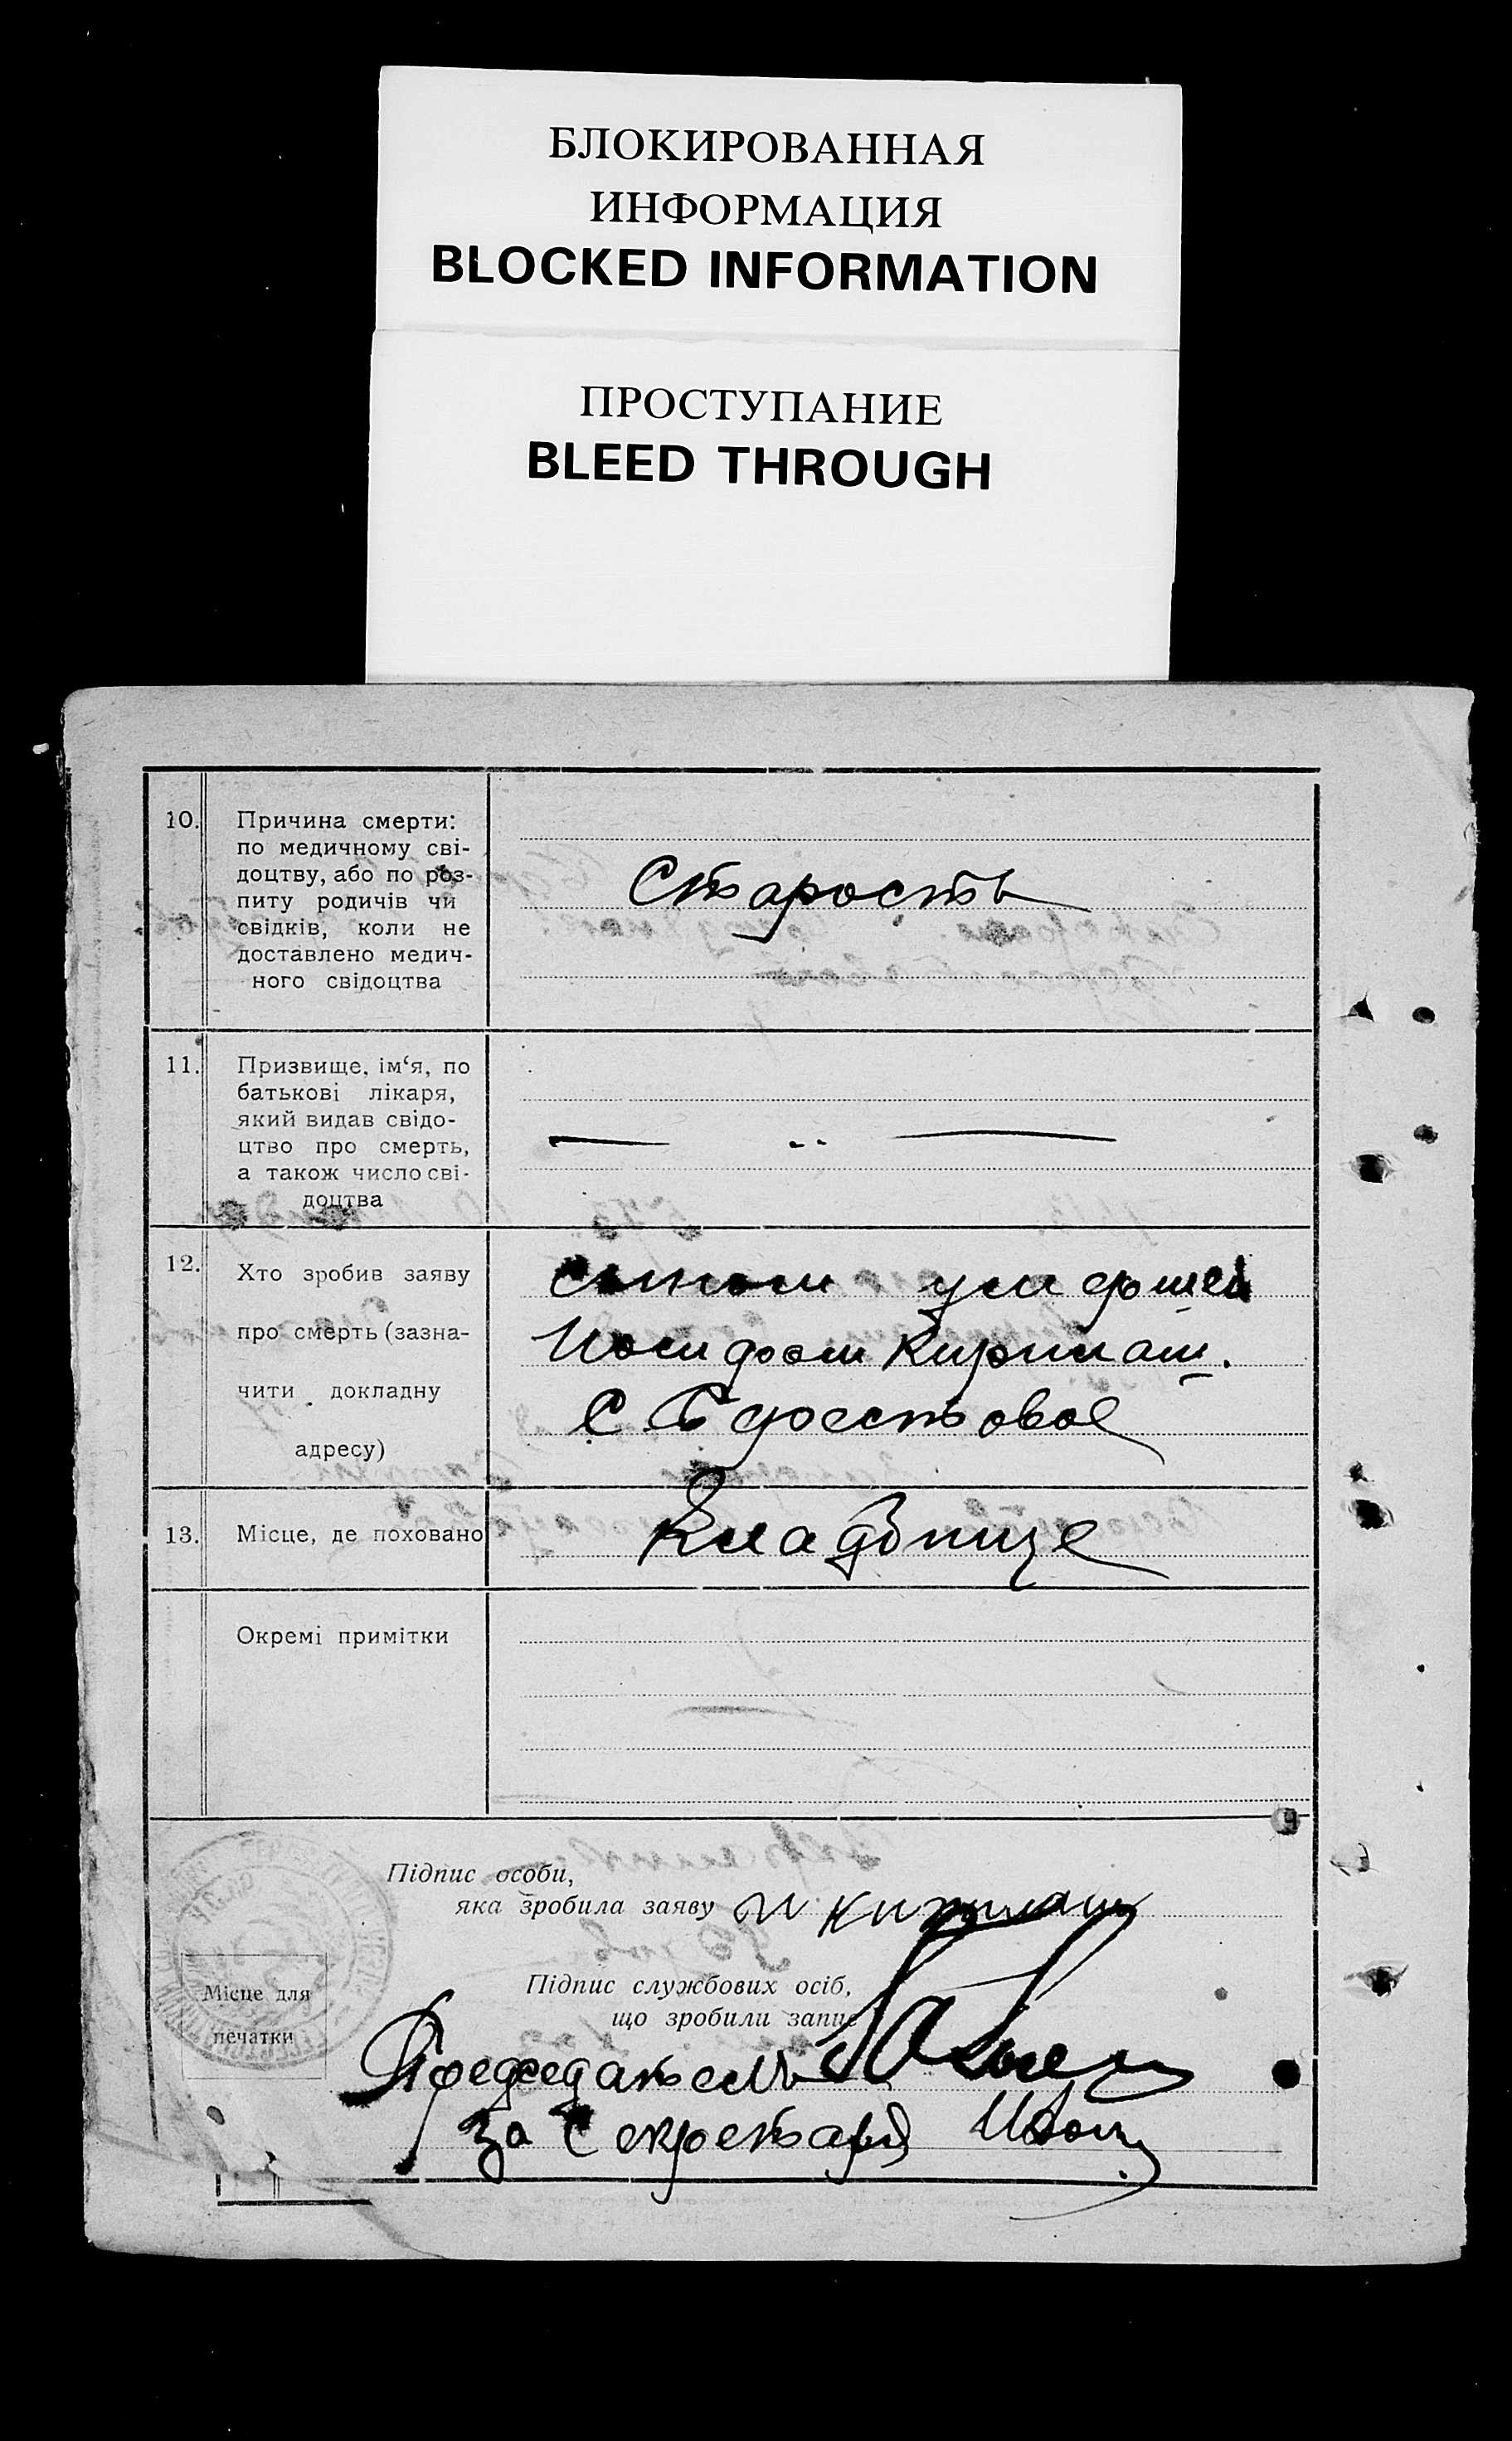 БЛОКИРОВАННАЯ
ИНФОРМАЦИЯ
BLOCKED INFORMATION
ПРОСТУПАНИЕ
BLEED THROUGH
10.
Причина смерти:
по медичному сві-
доцтву, або по роз-
питу родичів чи
свідків, коли не
доставлено медич-
ного свідоцтва
Старость
11.
Призвище, ім‘я, по
батькові лікаря,
який видав свідо-
цтво про смерть,
а також число сві-
доцтва
12.
Хто зробив заяву
про смерть (зазна-
чити докладну
адресу)
сыном
С.
13.
Місце, де поховано
Кладбище
Окремі примітки
Підпис особи,
яка зробила заяву
Підпис службових осіб,
що зробили запис
Місце для
печатки
Председатель
За Секретаря